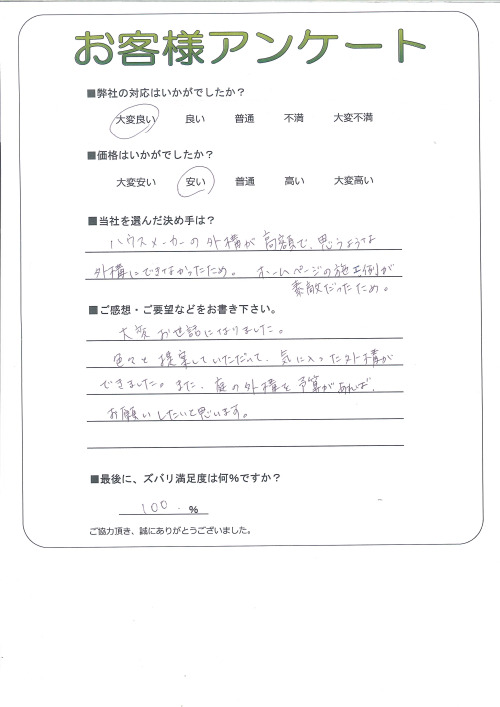 お客様アンケート
■弊社の対応はいかがでしたか？
大変良い 良い 普通 不満 大変不満
■価格はいかがでしたか？
大変安い 安い 普通 高い 大変高い
■当社を選んだ決め手は？
ハウスメーカーの外構が高額で、思うような
外構にできなかったため。 ホームページの施工例が
素敵だったため。
■ご感想・ご要望などをお書き下さい。
大変お世話になりました。
色々と提案していただいて、気に入った外構が
できました。また、庭の外構も予算があれば、
お願いしたいと思います。
■最後に、ズバリ満足度は何％ですか？
100 ％
ご協力頂き、誠にありがとうございました。